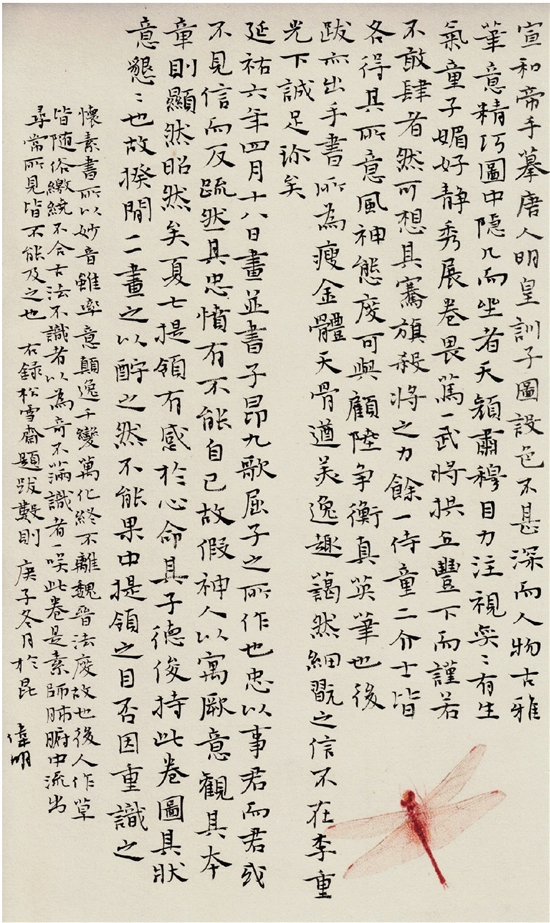 宣和帝手摹唐人明皇訓子圖設色不甚深而人物古雅
筆意精巧圖中隱几而坐者天顏肅穆目力注視奕〻有生
氣童子媚好靜秀展卷畏篤一武將拱立豐下而謹若
不敢肆者然可想其騫旗殺將之力餘一侍童二介士皆
各得其所意風神態度可與顧陸爭衡真英筆也後
跋而出手書所為瘦金體天骨遒美逸趣藹然細翫之信不在李重
光下誠足珍矣
延祐六年四月十八日畫並書子昂九歌屈子之所作也忠以事君而君或
不見信而反疏然其忠憤有不能自已故假神人以寓厥意觀其本
章則顯然昭然矣夏七提領有感於心命其子德俊持此卷圖其狀
意懇〻也故揆閒二畫之以酧之然不能果中提領之目否因重識之
懷素書所以妙音雖率意顛逸千變萬化終不離魏晉法度故也後人作草
皆随俗繳繞不合古法不識者以為奇不滿識者一咲此卷是素師肺腑中流出
尋常所見皆不能及之也 右錄松雪齋題跋數則 庚子冬月於昆
偉明